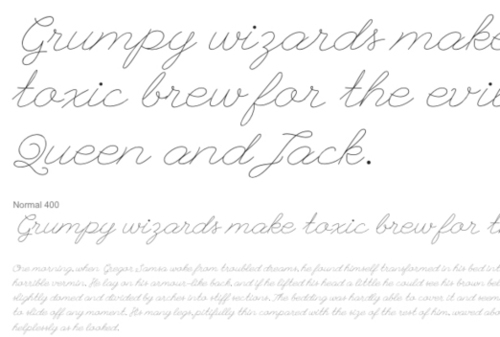 Grumpy wizards make
toxic brew for the evil
Queen and Jack.
Normal 400
Grumpy wizards make toxic brew for t
One morning, when Gregor Samsa woke from troubled dreams, he found himself transformed in his bed int
horrible vermin. He lay on his armour-like back, and if he lifted his head a little he could see his brown bel
slightly domed and divided by arches into stiff sections. The bedding was hardly able to cover it and seem
to slide off any moment. His many legs, pitifully thin compared with the size of the rest of him, waved abo
helplessly as he looked.